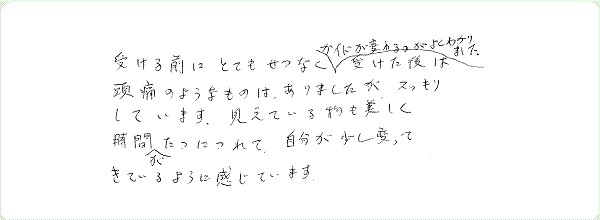 ガイドが変わるのがよくわかり
ました
受ける前にとてもせつなく 受けた後は
頭痛のようなものは、ありましたが、スッキリ
しています。見えている物も美しく
時間たつにつれて、自分が少し変って
が
きているように感じています。